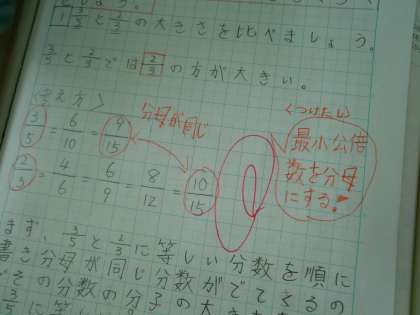 1 3/5と2/3の大きさを比べましょう。
3/5と2/3では2/3の方が大きい。
〈考え方〉
分母が同じ
〈つけたし〉
3/5 = 6/10 = 9/15
最小公倍
数を分母
にする。
2/3 = 4/6 = 6/9 = 8/12 = 10/15
ます、3/5と2/3に等しい分数を順に
書き分母が同じ分数がでてくるの
その分数の分子の大き
3/5に等